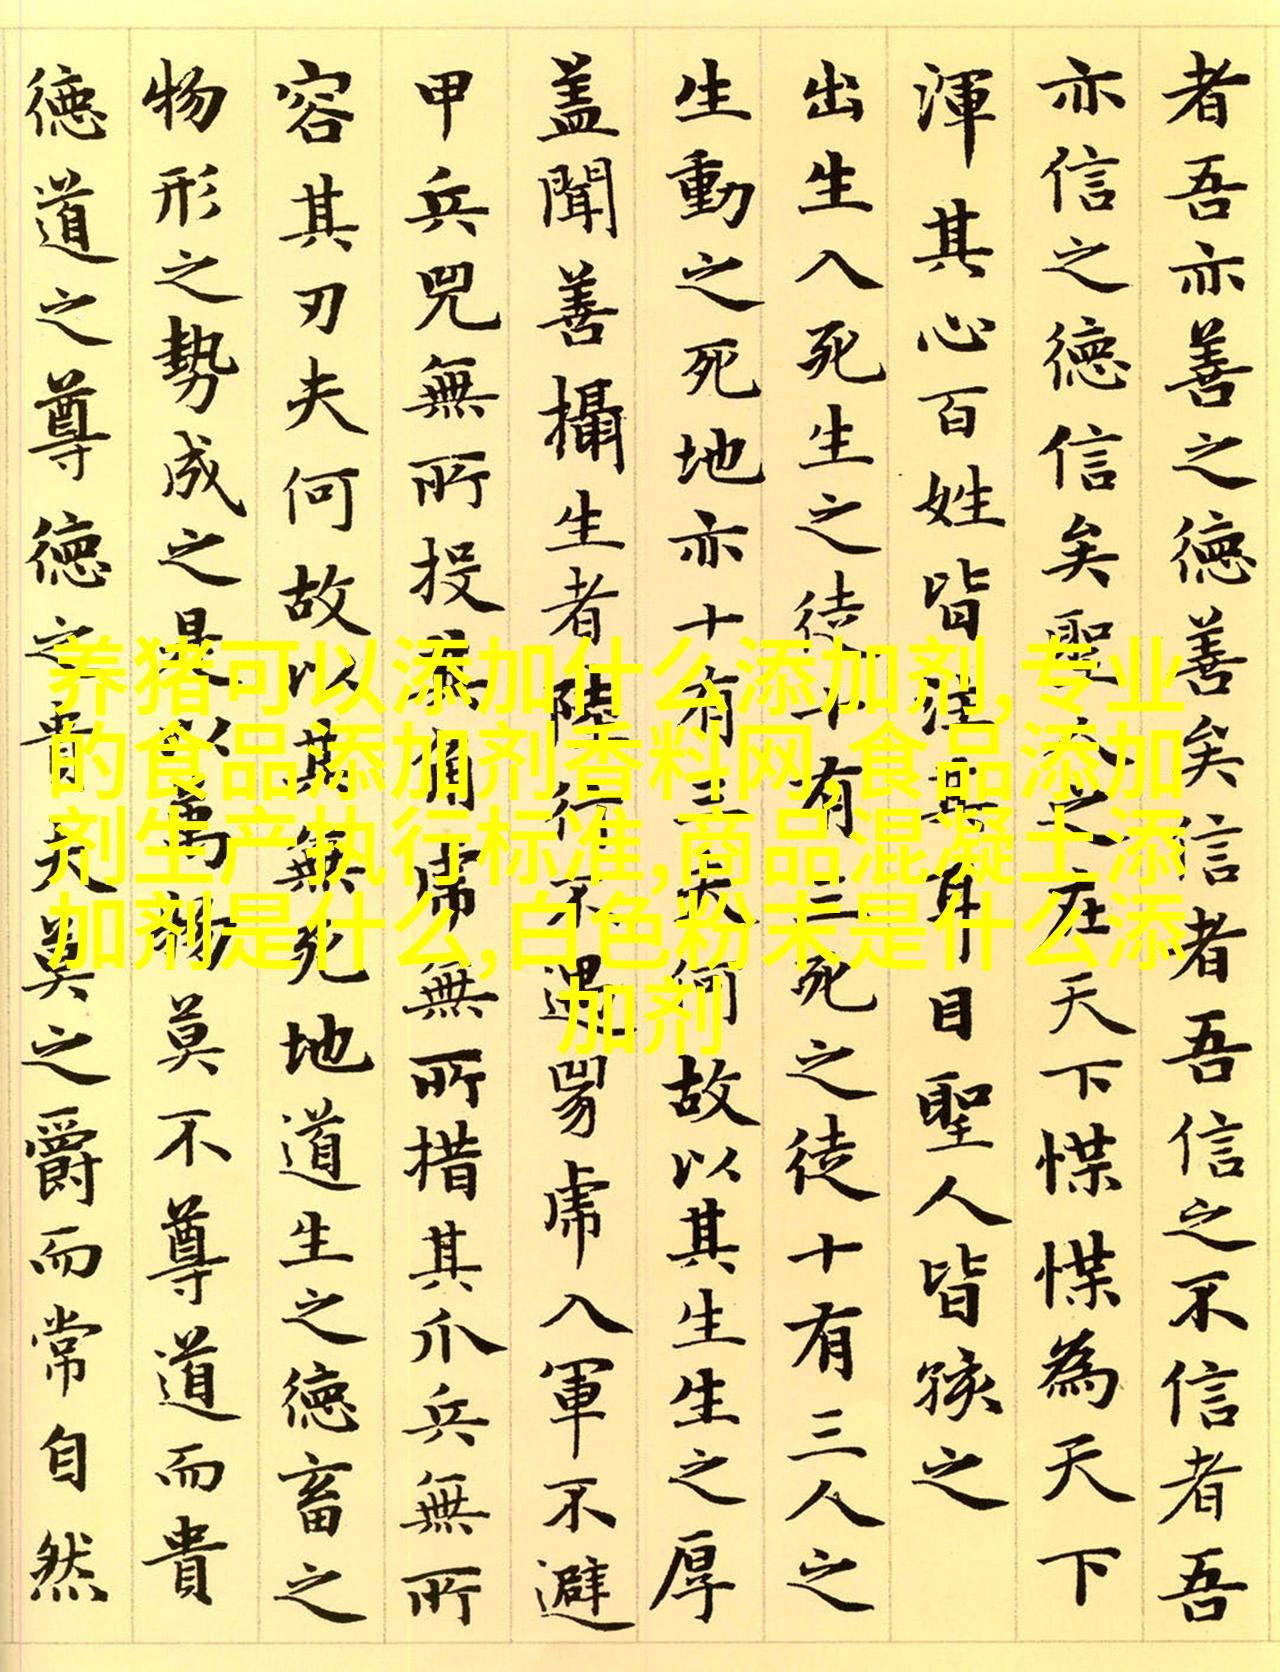 者吾亦善之德善矣信者吾信之不信者吾
亦信之德信矣聖人之在天下惵惵為天下
渾其心百姓皆注其耳目聖人皆孩之
出生入死生之徒十有三死之徒十有三人之
生動之死地亦十有三夫何故以其生生之厚
蓋聞善攝生者陸行不遇兕虎入軍不避
甲兵兕無所投其角虎無所措其爪兵無所
容其刃夫何故以其無死地道生之德畜之
物形之勢成之是以萬物莫不尊道而貴
德道之尊德之貴夫莫之爵而常自然
养猪可以添加什么添加剂,专业
的食品添加剂香料网,食品添加
剂生产执行标准,商品混凝土添
加剂是什么,白色粉末是什么添
加剂